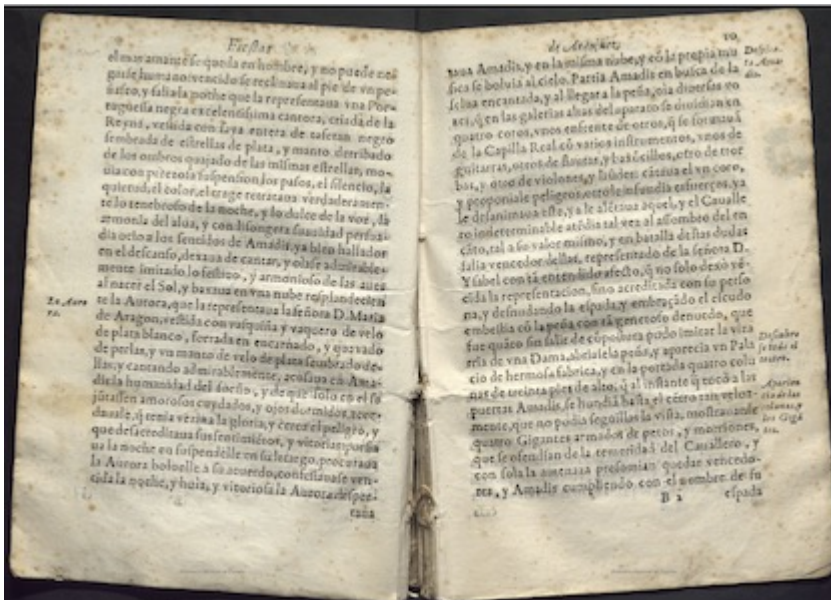 Fiestas
el mas amante se queda en hombre, y no puede ne-
garse humano: vencido se reclinaua al pie de vn pe-
ñasco, y salia la noche que la representaua vna Por-
tuguessa negra excelentissima cantora, criada de la
Reyna, vestida con saya entera de tafetan negro
sembrada de estrellas de plata, y manto derribado
de los ombros quajado de las mismas estrellas, mo-
uia con perezosa suspension los pasos, el silencio, la
quietud, el color, el trage retrataua verdaderamen-
te lo tenebroso de la noche, y lo dulce de la voz, la
armonia del alua, y con lisongera suauidad persua-
dia ocio a los sentidos de Amadis, ya bien hallados
en el descanso, dexaua de cantar, y oiase admirable-
mente imitado lo festiuo, y armonioso de las aues
al nacer el Sol, y baxaua en vna nube resplandecien
te la Aurora, que la representaua la señora D. Maria
de Aragon, vestida con vasquiña y vaquero de velo
de plata blanco, forrada en encarnado, y quaxado
de perlas, y vn manto de velo de plata sembrado de
llas; y cantando admirablemente, acusaua en Ama-
dis la humanidad del sueño, y de que solo en el so
amorosos cuydados, y ojos dormidos,
dauale, q̃ tenia vezina la gloria, y cerca el peligro, y
que desacreditaua sus sentimiẽtos, y vitorias: porfia
ua la noche en suspendelle en su letargo, procuraua
la Aurora boluelle a su acuerdo, confessauase ven-
cida la noche, y huia, y vitoriosa la Aurora desper-
taua
La Auro
ra.
de Aranjuez. 10
taua Amadis, y en la misma nube, y cõ la propia mu
sica se boluia al cielo. Partia Amadis en busca de la
selua encantada, y al llegar a la peña, oia diversas vo
zes, q̃ en las galerias altas del aparato se diuidian en
quatro coros, vnos enfrente de otros, q̃ se formauã
de la Capilla Real cõ varios instrumentos, vnos de
guitarras, otros de flautas, y baxõcillos, otro de tior
bas, y otro de violones, y laudes: cãtaua el vn coro,
y proponiale peligros, otro le infundia esfuerços, ya
le desanimaua este, ya le alẽtaua aquel, y el Caualle
ro indeterminable atẽdia tal vez al assombro del en
cãto, tal a su valor mismo, y en batalla destas dudas
salia vencedor dellas, representado de la señora D.
Ysabel con tã entendido afecto, q̃ no solo dexò vẽ-
cida la representacion, sino acreditada con su perso
na, y desnudando la espada, y embraçãdo el escudo
embestia cõ la peña, con tã generoso denuedo, que
fue quãto sin salir de cõpostura pudo imitar la viza
rria de vna Dama, abriasele la peña, y aparecia vn Pala
cio de hermosa fabrica, y en la portada quatro colu
nas de treinta pies de alto, q̃ al instante q̃ tocò a las
puertas Amadis, se hundiã hasta el cẽtro tan veloz-
mente, que no podia seguillas la vista, mostrando
quatro Gigantes armados de petos, y morriones,
que se ofendian de la temeridad del Cauallero, y
con sola la amenaza presomian quedar vencedo-
res, y Amadis cumpliendo con el nombre de su
B 2 espada
Descubre
se todo el
teatro.
Aparien
cia de las
colunas, y
los Gigã
tes.